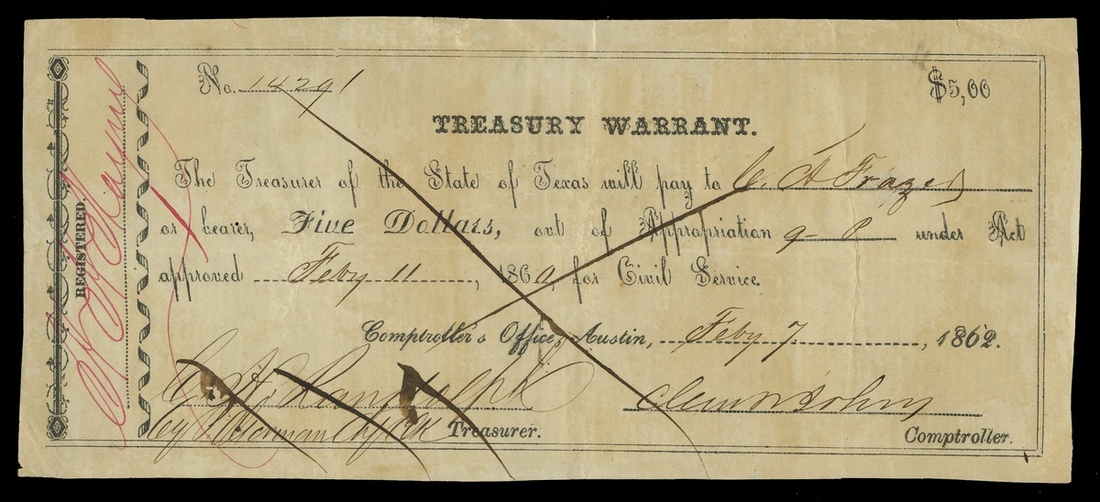 No. 14291 $5,00
TREASURY WARRANT.
The Treasurer of the State of Texas will pay to C. A Frazer
or bearer, Five Dollars, out of Appropriation 9-8 under Act
approved Feby 11, 1860, for Civil Service.
Comptroller's Office, Austin, Feby 7, 1862.
C. H. Randolph Clem R Johns
Treasurer. Comptroller.
REGISTERED.